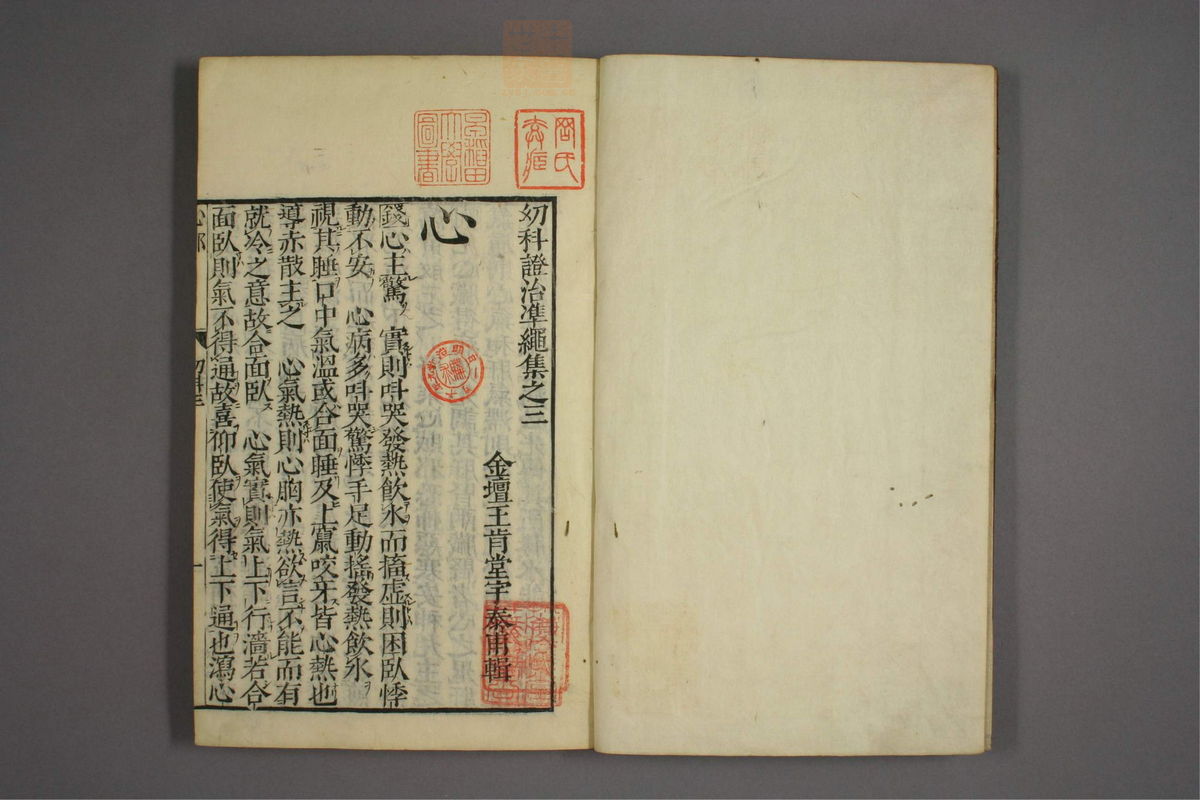 幼科證治準繩集之三
金壇王肯堂宇泰甫輯
心
錢心主驚 實則呌哭發熱飲水而搐虛則困臥悸
動不安 心病多呌哭驚悸手足動搖發熱飲水
視其睡口中氣溫或合面睡及上竄咬牙皆心熱也
導赤散主之 心氣熱則心胸亦熱欲言不能而有
就冷之意故合面臥 心氣實則氣上下行濇若合
面臥則氣不得通故喜仰臥使氣得上下通也瀉心
心部
幼科三
一
早稲田大學圖書